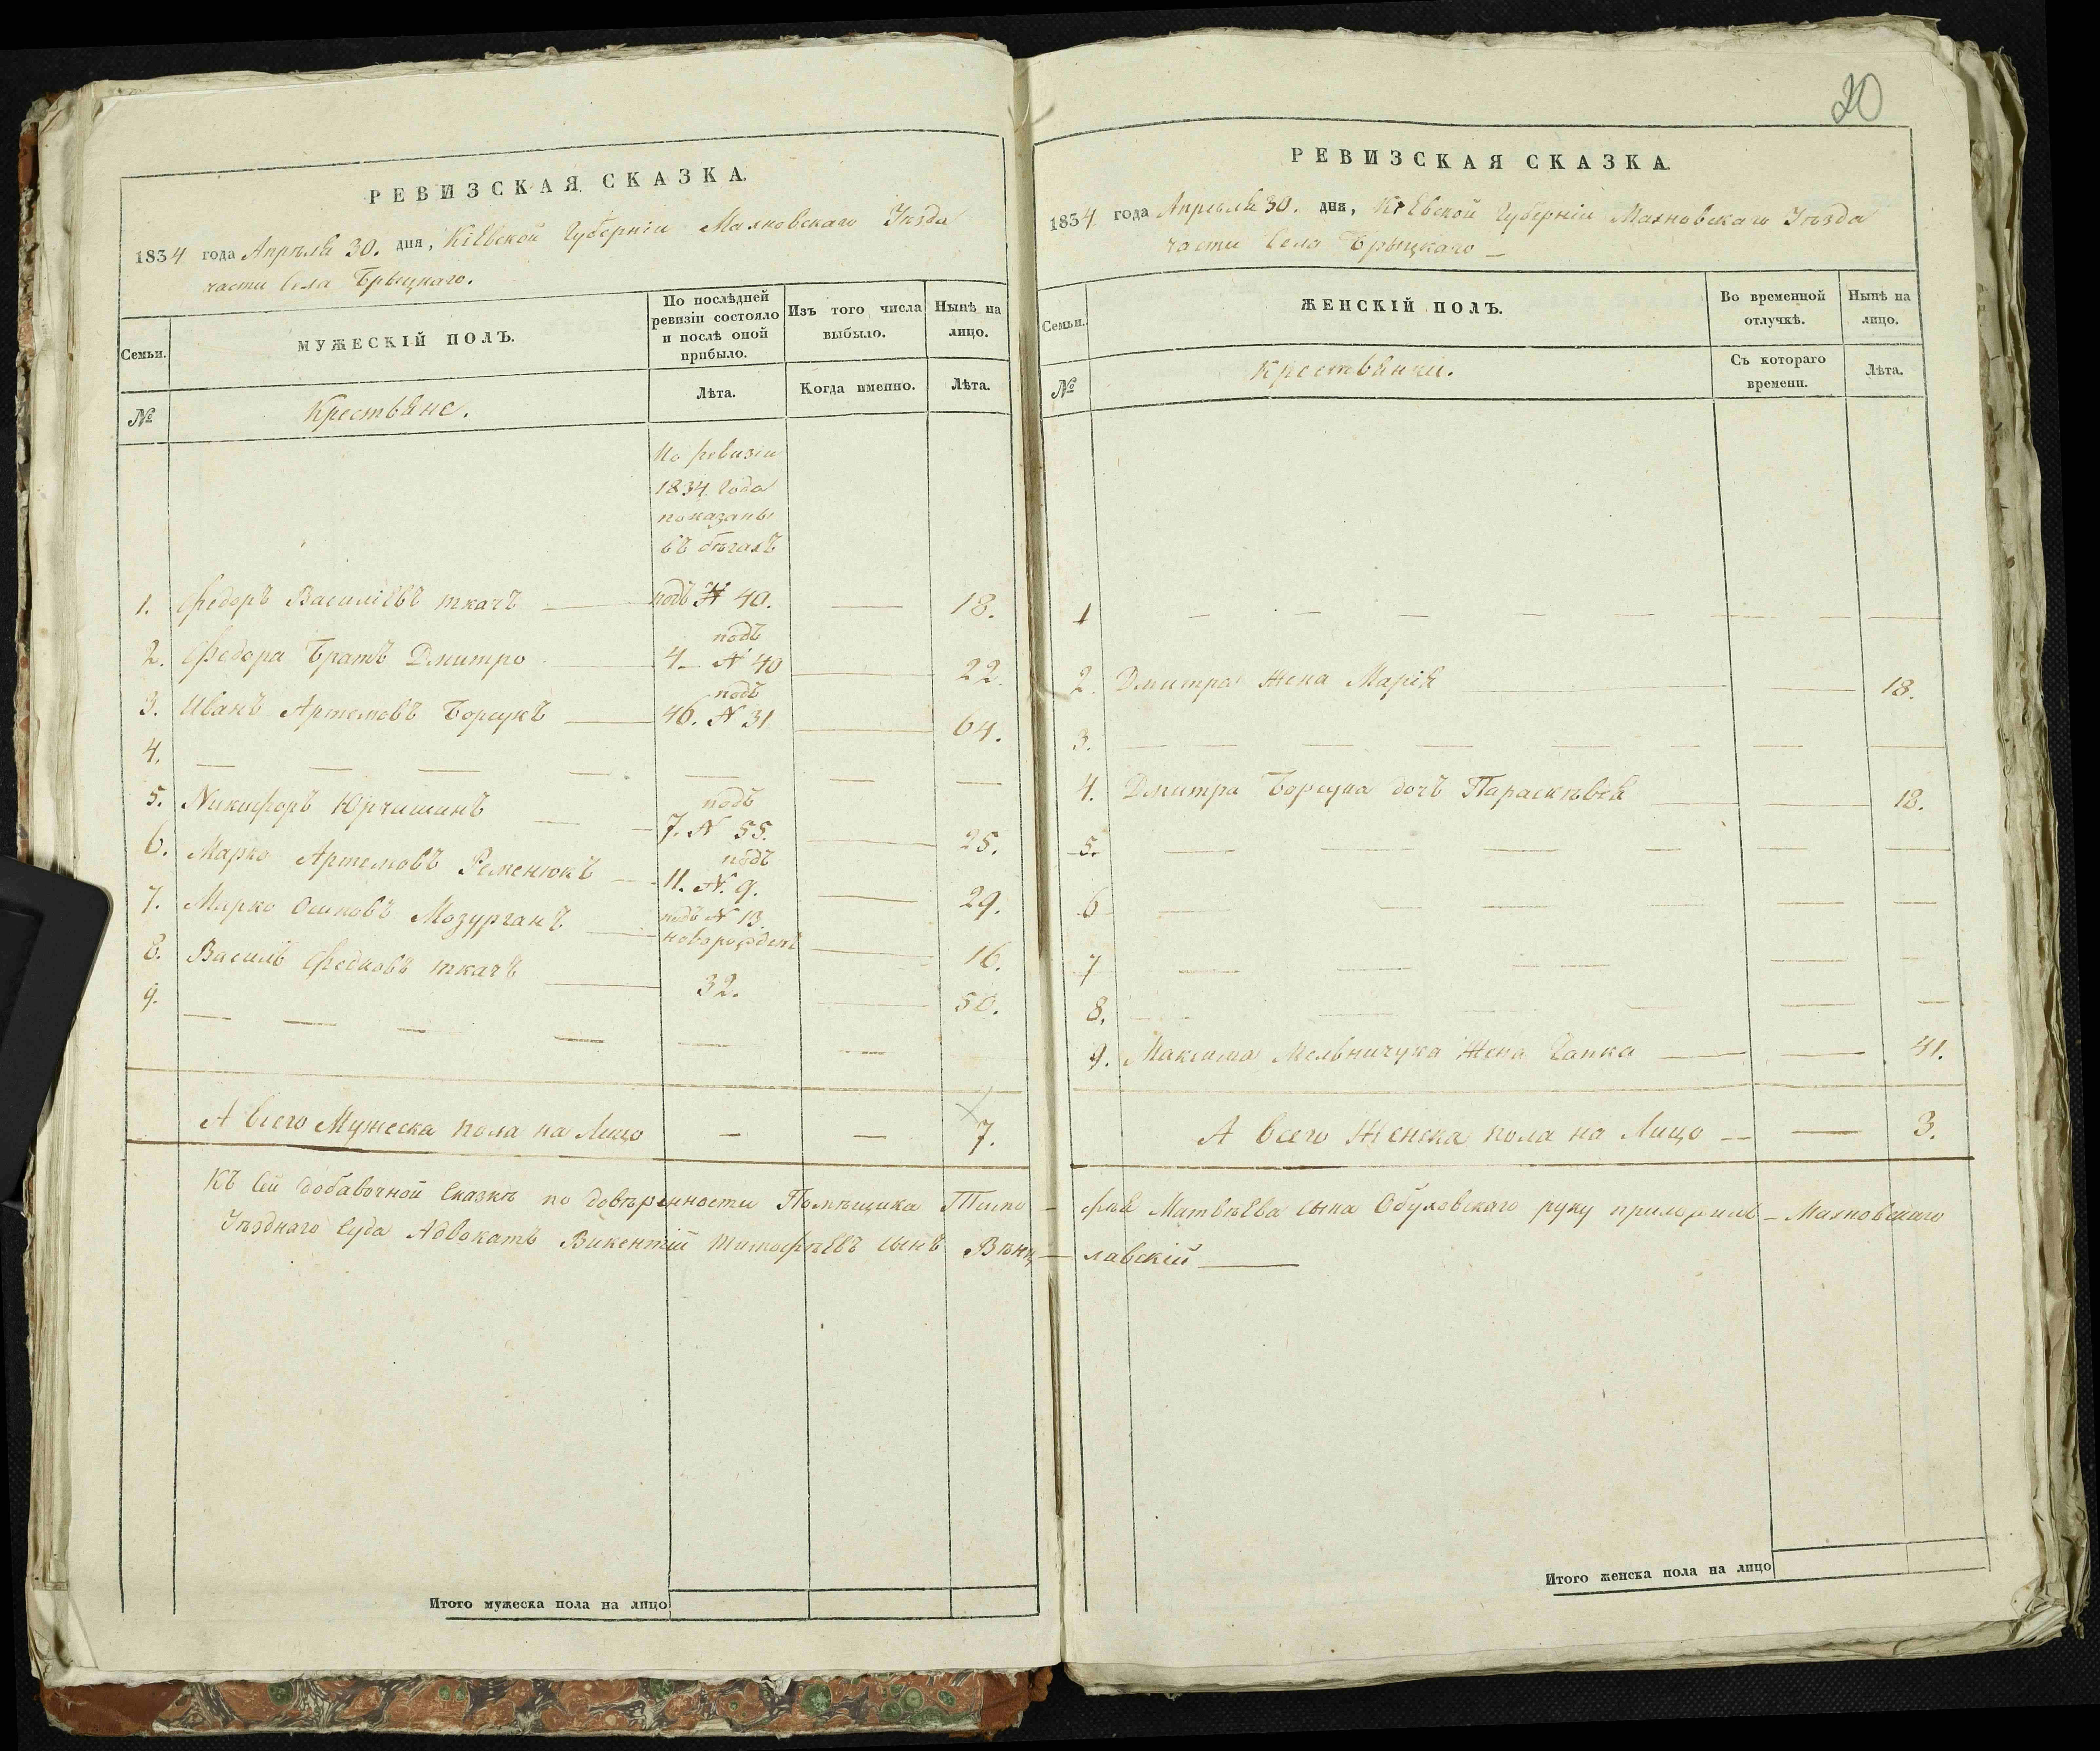 РЕВИЗСКАЯ СКАЗКА.
1834 года Апрѣля 30. дня, Кіевской Губерніи Махновскаго Уѣзда
части Села Брыцкаго.
Семьи.
МУЖЕСКІЙ ПОЛЪ.
По послѣдней
ревизіи состояло
и послѣ оной
прибыло.
Изъ того числа
выбыло.
Нынѣ на
лицо.
№
Крестьяне.
Лѣта.
Когда именно.
Лѣта.
По ревизіи
1834 Года
показаны
въ бѣгахъ
1. Федоръ Василіевъ ткачъ подъ N 40. 18.
2. Федора Братъ Дмитро 4. подъ N 40 22.
3. Иванъ Артемовъ Борщукъ 46. подъ N 31 64.
4.
5. Никифоръ Юрчишинъ 7. подъ N 55. 25.
6. Марко Артемовъ Ременюкъ 11. подъ N. 9. 29.
7. Марко Осиповъ Мазурганъ подъ N 13. новорожденъ 16.
8. Василь Федковъ ткачъ 32. 50.
9.
А всего Мужеска пола на Лицо — — 7.
Итого мужеска пола на лицо
20
РЕВИЗСКАЯ СКАЗКА.
1834 года Апрѣля 30. дня, Кіевской Губерніи Махновскаго Уѣзда
части Села Брыцкаго —
Семьи.
ЖЕНСКІЙ ПОЛЪ.
Во временной
отлучкѣ.
Нынѣ на
лицо.
№
Крестьянки.
Съ котораго
времени.
Лѣта.
1
2. Дмитра Жена Марія 18.
3.
4. Дмитра Борщука дочь Параскѣвея 18.
5.
6
7
8.
9. Максима Мельничука Жена Гапка 41.
А всего Женска пола на Лицо — — 3.
Къ сей добавочной Сказкѣ по довѣренности Помѣщика Тимо–фѣя Матвѣева сына Обуховскаго руку приложилъ – Махновскаго
Уѣзднаго Суда Адвокатъ Викентій Тимофѣевъ сынъ Вѣнц–лавскій
Итого женска пола на лицо